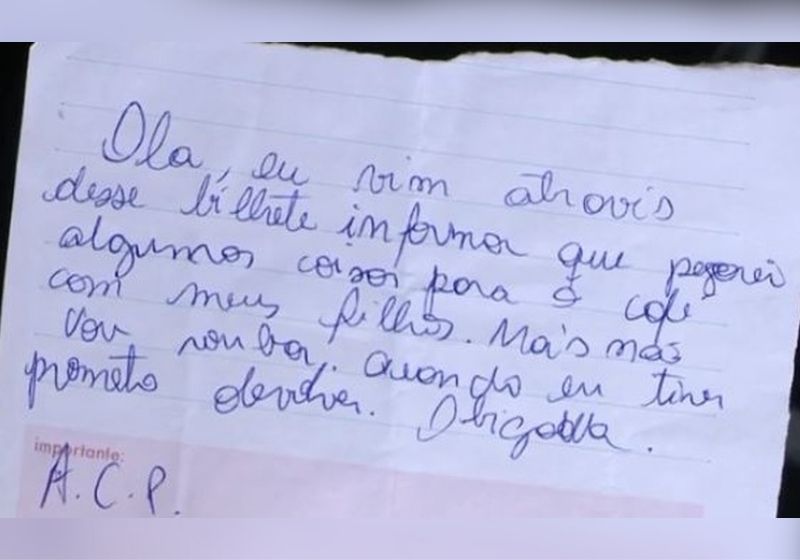 Ola, eu vim atravis
desse bilhete informar que pegarei
algumas coisas para o café
com meus filhos. Mais não
vou rouba. Quando eu tiver
prometo devolver. Obrigada.
importante:
A.C.P.